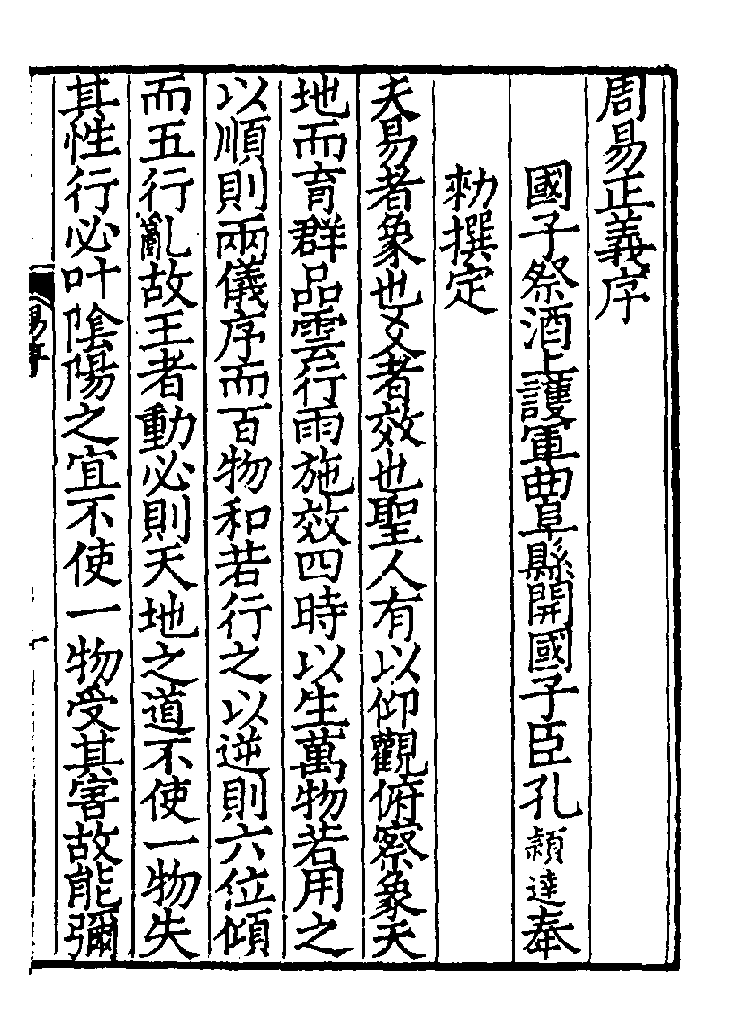 周易正義序
國子祭酒上護軍曲阜縣開國子臣孔穎達奉
勑撰定
夫易者象也爻者效也聖人有以仰觀俯察象天
地而育群品雲行雨施效四時以生萬物若用之
以順則兩儀序而百物和若行之以逆則六位傾
而五行亂故王者動必則天地之道不使一物失
其性行必叶陰陽之宜不使一物受其害故能彌
易序
一